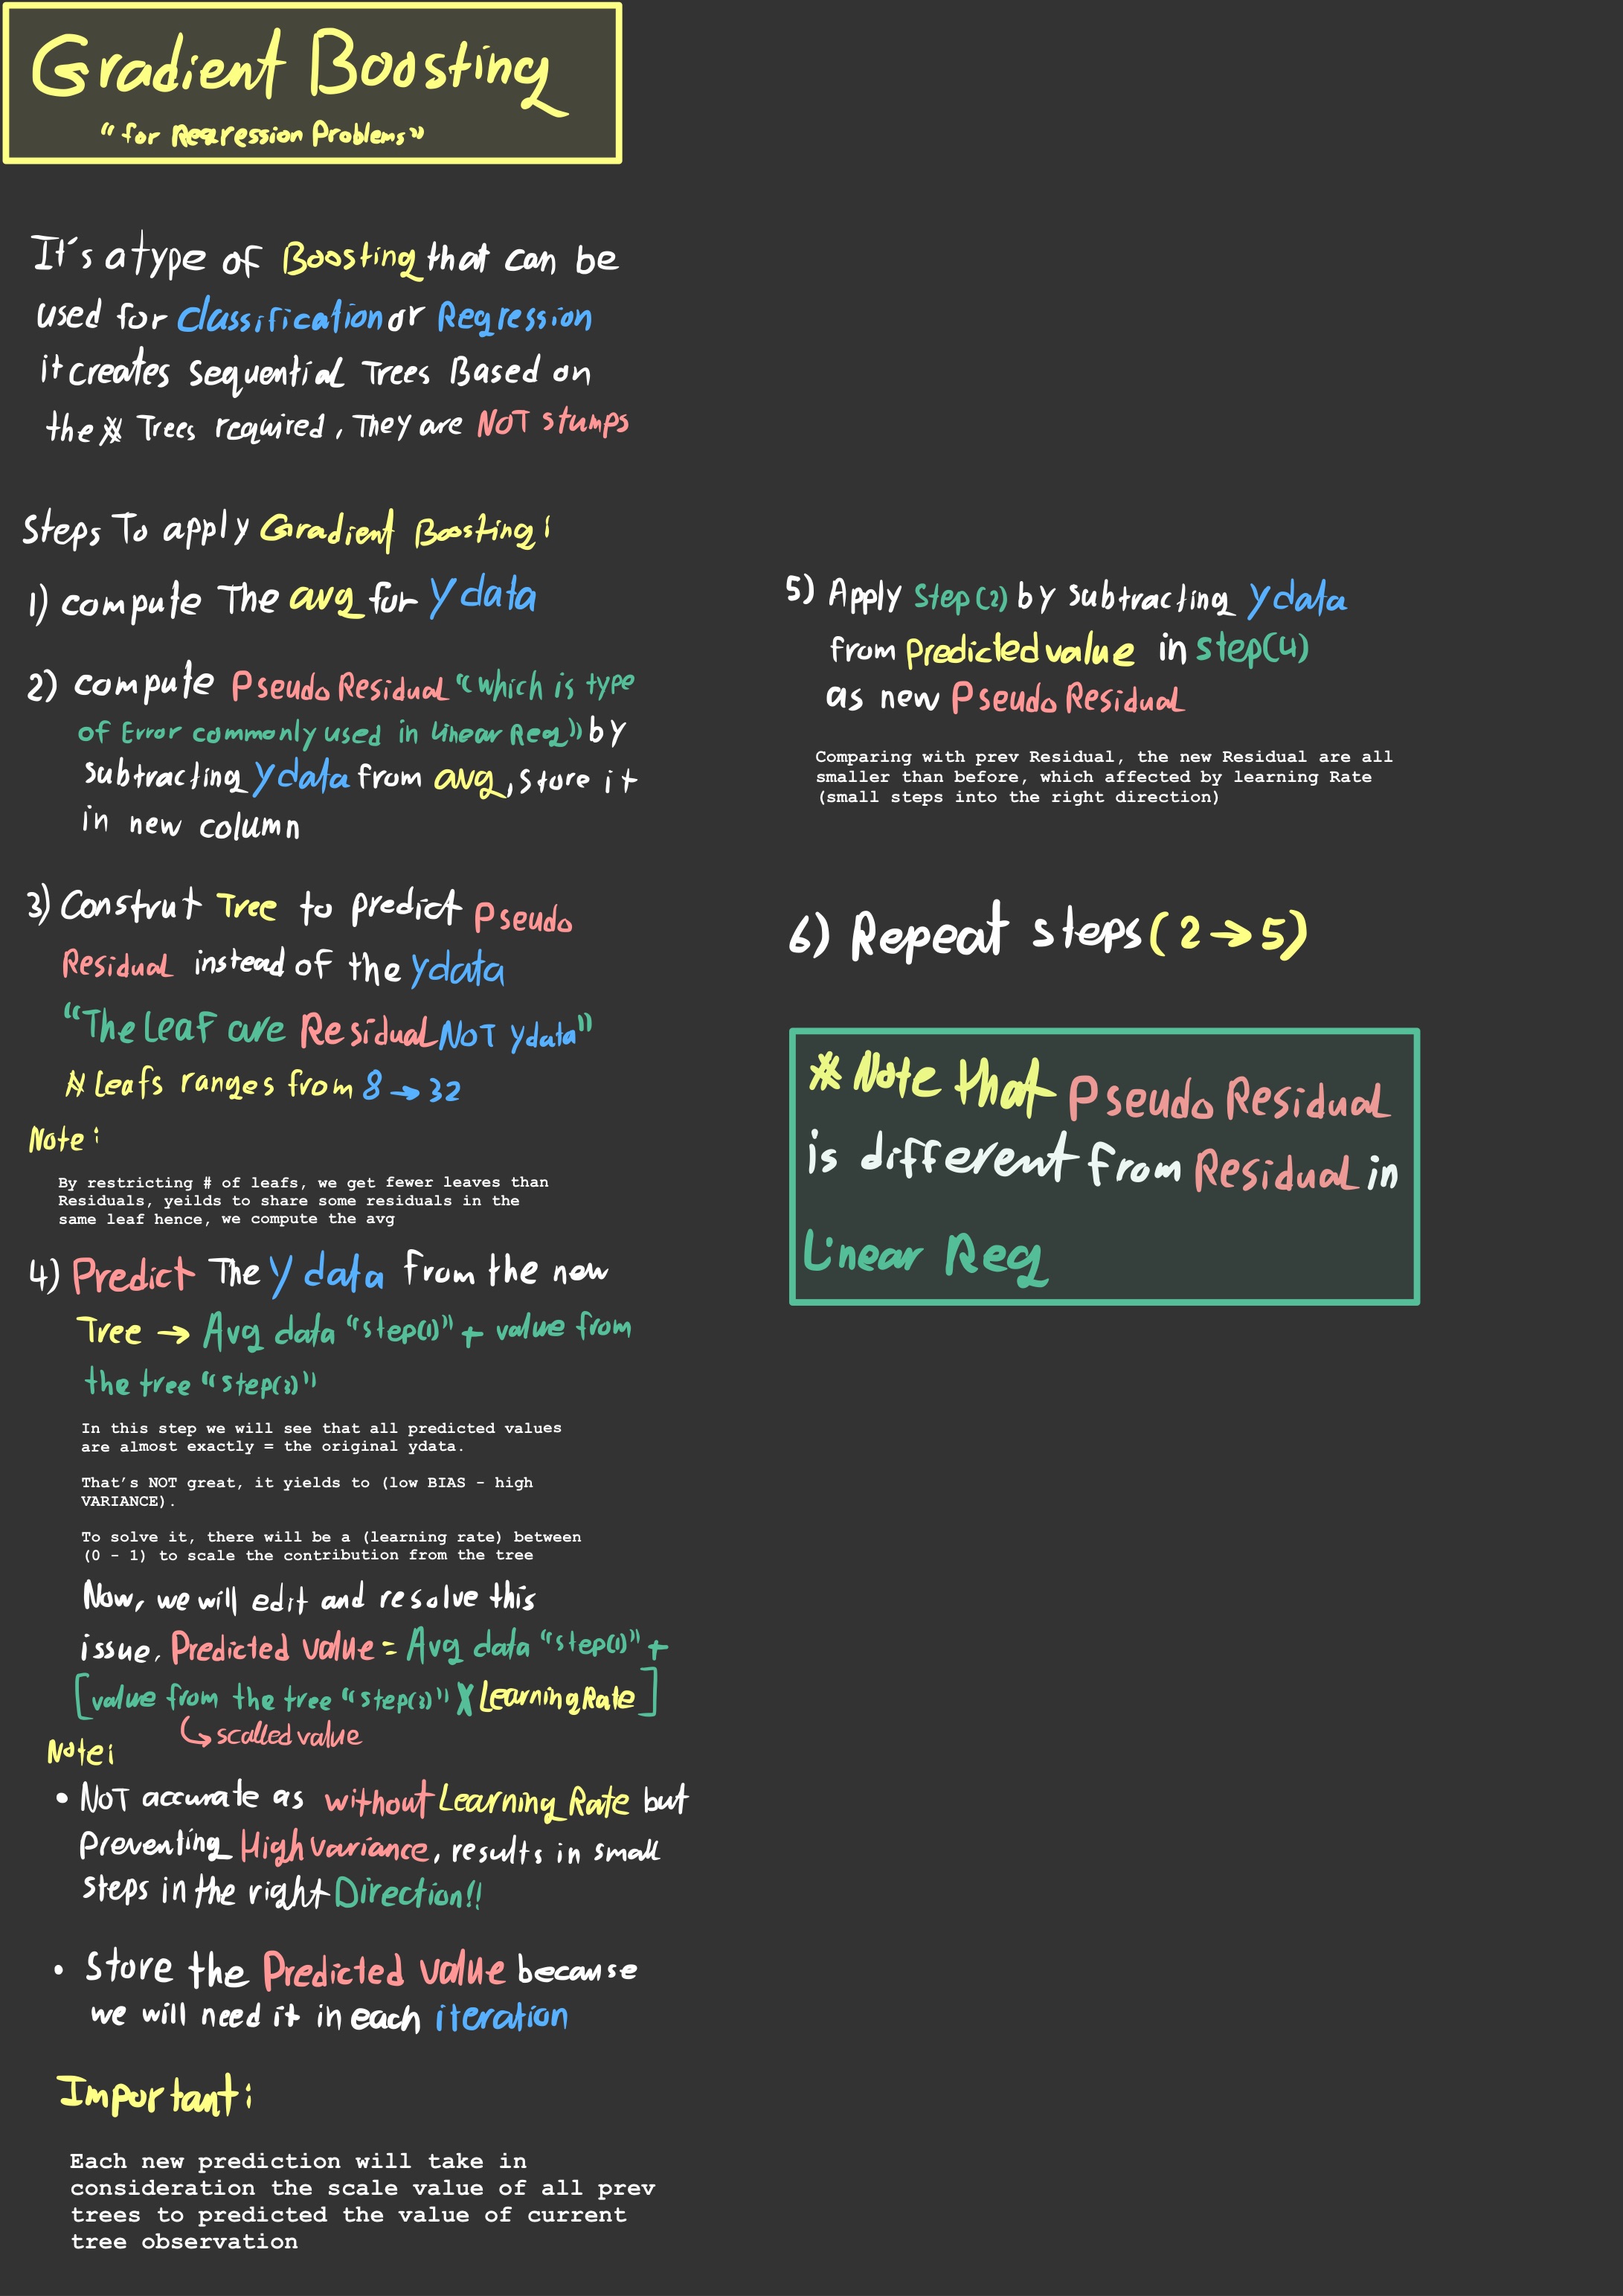 Gradient Boosting
"for Regression Problems"
It's a type of Boosting that can be
used for classification or Regression
it creates sequential Trees Based on
the # Trees required, They are NOT stumps
Steps To apply Gradient Boosting:
1) compute The avg for Y data
2) compute Pseudo Residual "which is type
of Error commonly used in Linear Reg" by
subtracting Y data from avg, store it
in new column
3) Construt Tree to predict Pseudo
Residual instead of the Ydata
"The leaf are Residual NOT Ydata"
# Leafs ranges from 8 → 32
Note:
By restricting # of leafs, we get fewer leaves than
Residuals, yeilds to share some residuals in the
same leaf hence, we compute the avg
4) Predict The Y data from the new
Tree → Avg data "step(1)" + value from
the tree "step(3)"
In this step we will see that all predicted values
are almost exactly = the original ydata.
That's NOT great, it yields to (low BIAS - high
VARIANCE).
To solve it, there will be a (learning rate) between
(0 - 1) to scale the contribution from the tree
Now, we will edit and resolve this
issue. Predicted value = Avg data "step(1)" +
[value from the tree "step(3)" X Learning Rate]
↳ scalled value
Note:
• NOT accurate as without Learning Rate but
Preventing High variance, results in small
steps in the right Direction!!
• Store the Predicted value because
we will need it in each iteration
Important:
Each new prediction will take in
consideration the scale value of all prev
trees to predicted the value of current
tree observation
5) Apply Step(2) by subtracting Y data
from predicted value in step(4)
as new Pseudo Residual
Comparing with prev Residual, the new Residual are all
smaller than before, which affected by learning Rate
(small steps into the right direction)
6) Repeat steps (2 → 5)
# Note that Pseudo Residual
is different from Residual in
Linear Reg